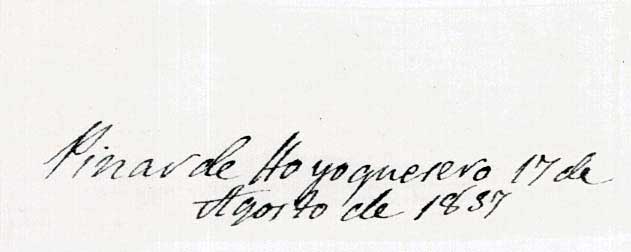 Pinar de Hoyoquesero 17 de
Agosto de 1837